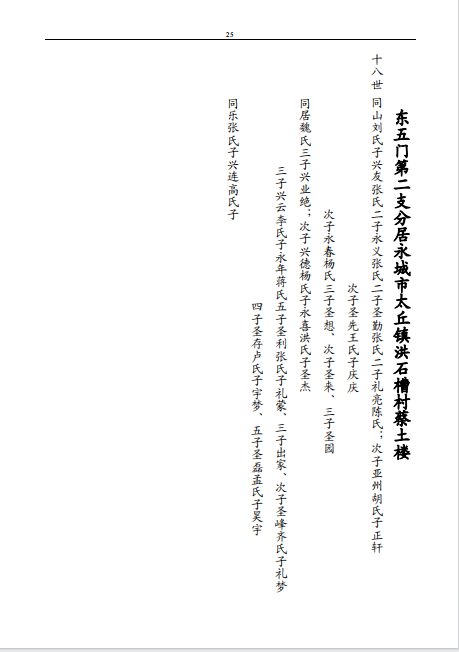 25
东五门第二支分居永城市太丘镇洪石槽村蔡土楼
十八世 同山刘氏子兴友张氏二子永义张氏二子圣勤张氏二子礼亮陈氏；次子亚州胡氏子正轩
次子圣先王氏子庆庆
次子永春杨氏三子圣想、次子圣来、三子圣园
同居魏氏三子兴业绝；次子兴德杨氏子永喜洪氏子圣杰
三子兴云李氏子永年蒋氏五子圣利张氏子礼蒙、三子出家、次子圣峰齐氏子礼梦
四子圣存卢氏子宇梦、五子圣磊孟氏子昊宇
同乐张氏子兴连高氏子